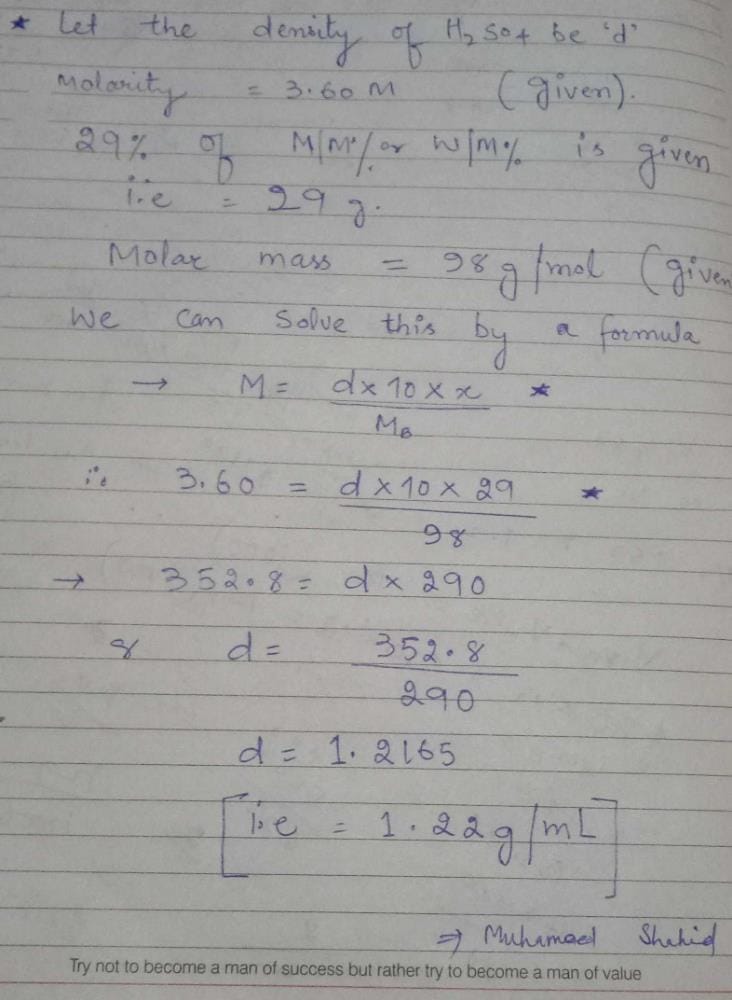 * Let the density of H₂SO4 be 'd'
Molarity = 3.60 M (given).
29% of M/M% or W/M% is given
i.e = 29 g.
Molar mass = 98 g/mol (given
We can solve this by a formula
→ M = d × 10 × x *
M_B
∴ 3.60 = d × 10 × 29 *
98
→ 352.8 = d × 290
8 d = 352.8
290
d = 1.2165
[i.e = 1.22 g/mL]
⇒ Muhamaed Shahid
Try not to become a man of success but rather try to become a man of value